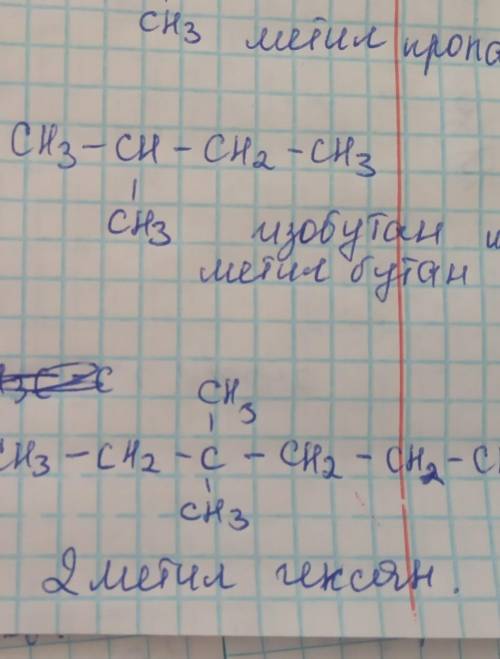 CH3 метил
CH3 - CH - CH2 - CH3
CH3 изобутан
метил бутан
CH3
CH3 - CH2 - C - CH2 - CH2 -
CH3
2 метил гексан.